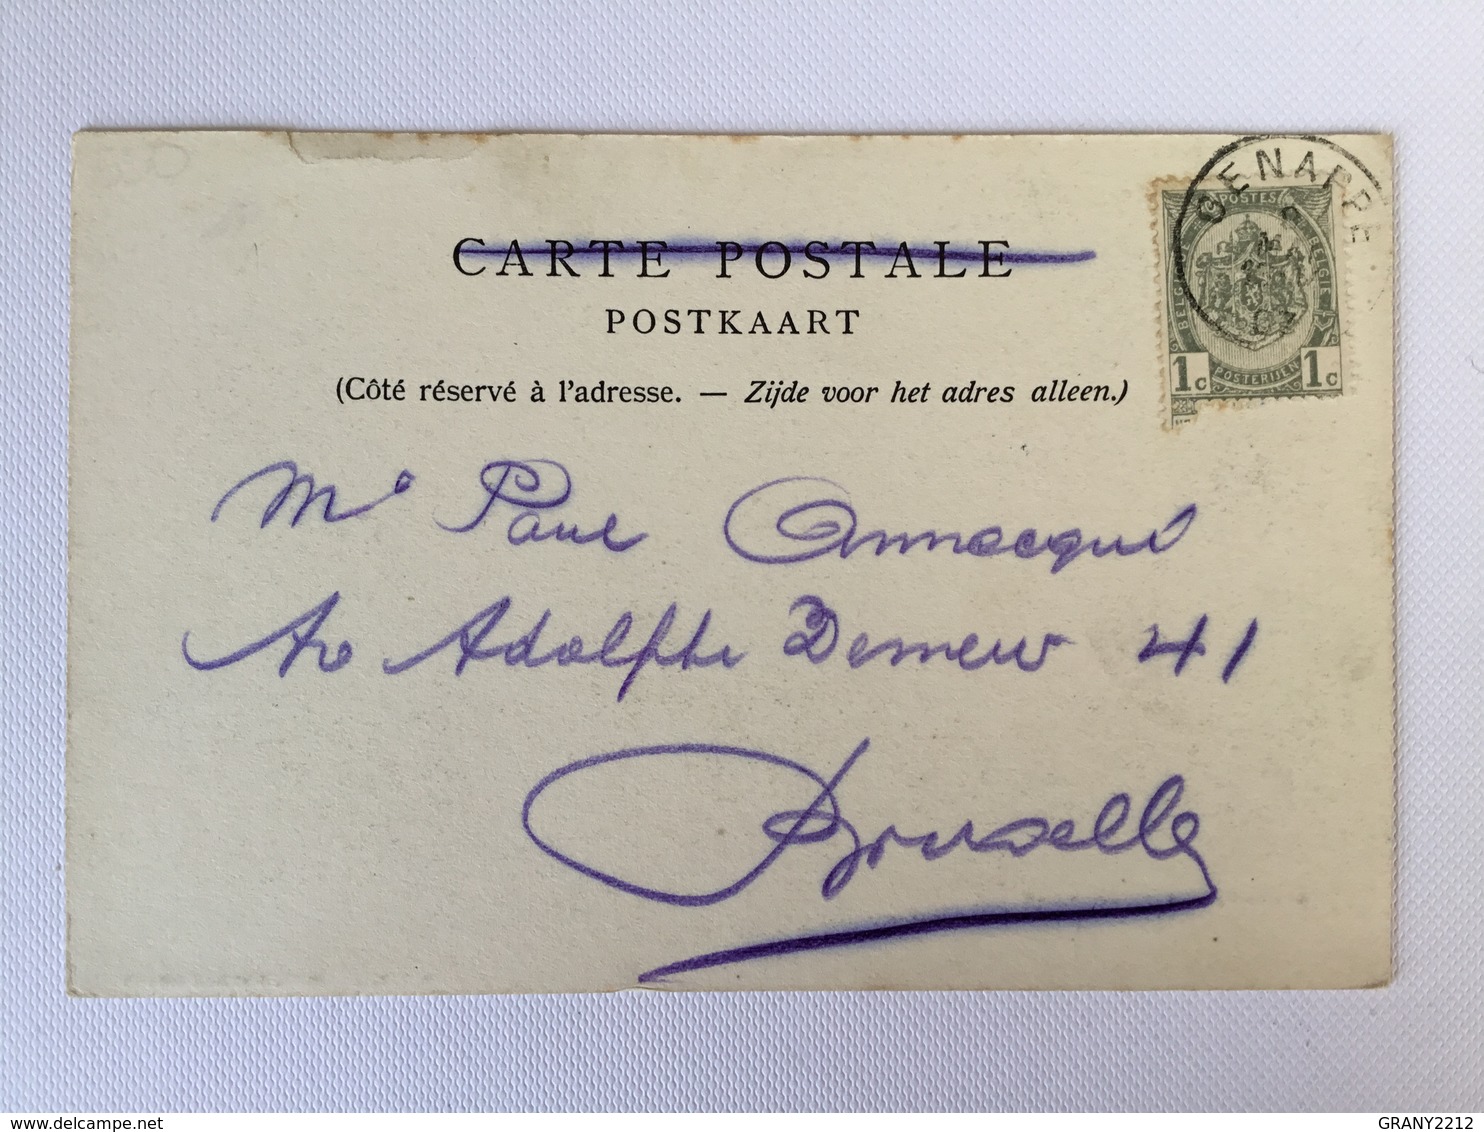 GENAPPE
POSTES
BELGIE
1c POSTERIJEN 1c
CARTE POSTALE
POSTKAART
(Côté réservé à l'adresse. — Zijde voor het adres alleen.)
Mr Paul Annocqué
Av Adolphe Demeur 41
Bruxelles
delcampe.net
GRANY2212